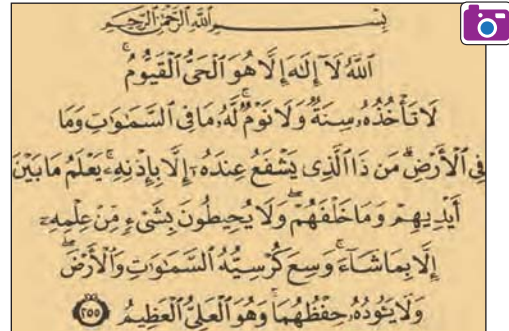 بِسْمِ ٱللَّهِ ٱلرَّحْمَٰنِ ٱلرَّحِيمِ
ٱللَّهُ لَآ إِلَٰهَ إِلَّا هُوَ ٱلْحَىُّ ٱلْقَيُّومُ ۚ
لَا تَأْخُذُهُۥ سِنَةٌ وَلَا نَوْمٌ ۚ لَّهُۥ مَا فِى ٱلسَّمَٰوَٰتِ وَمَا
فِى ٱلْأَرْضِ ۗ مَن ذَا ٱلَّذِى يَشْفَعُ عِندَهُۥٓ إِلَّا بِإِذْنِهِۦ ۚ يَعْلَمُ مَا بَيْنَ
أَيْدِيهِمْ وَمَا خَلْفَهُمْ ۖ وَلَا يُحِيطُونَ بِشَىْءٍ مِّنْ عِلْمِهِۦٓ
إِلَّا بِمَا شَآءَ ۚ وَسِعَ كُرْسِيُّهُ ٱلسَّمَٰوَٰتِ وَٱلْأَرْضَ ۖ
وَلَا يَـُٔودُهُۥ حِفْظُهُمَا ۚ وَهُوَ ٱلْعَلِىُّ ٱلْعَظِيمُ ٢٥٥